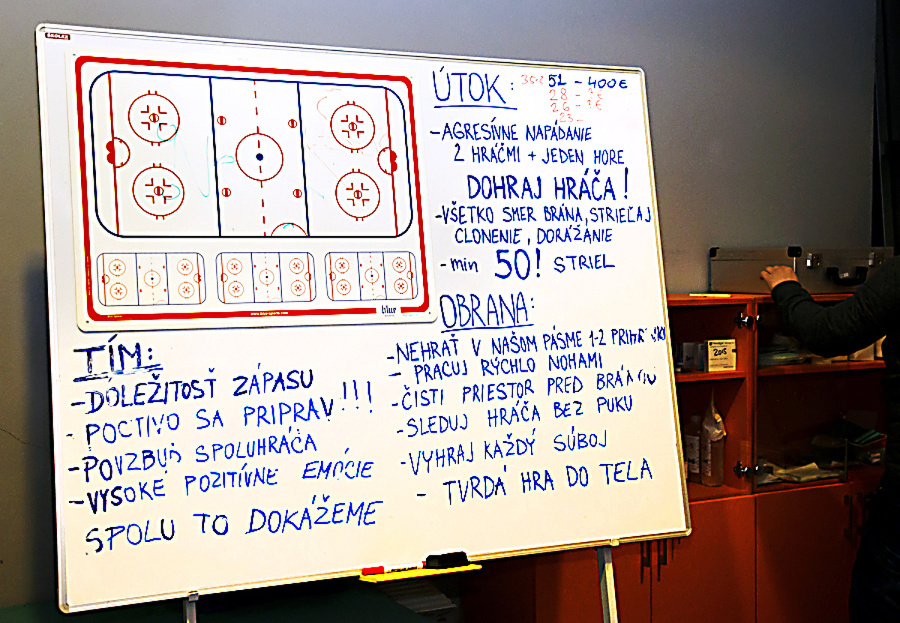 ÚTOK: 51 - 400€
28 -
26 - €
23 -
-AGRESÍVNE NAPÁDANIE
2 HRÁČMI + JEDEN HORE
DOHRAJ HRÁČA!
-VŠETKO SMER BRÁNA, STRIEĽAJ
CLONENIE, DORÁŽANIE
- min 50! STRIEL
OBRANA:
-NEHRAŤ V NAŠOM PÁSME 1-2
- PRACUJ RÝCHLO NOHAMI
-ČISTI PRIESTOR PRED
-SLEDUJ HRÁČA BEZ PUKU
-VYHRAJ KAŽDÝ SÚBOJ
- TVRDÁ HRA DO TELA
TÍM:
-DÔLEŽITOSŤ ZÁPASU
- POCTIVO SA PRIPRAV!!!
-POVZBUĎ SPOLUHRÁČA
-VYSOKÉ POZITÍVNE EMÓCIE
SPOLU TO DOKÁŽEME
blue